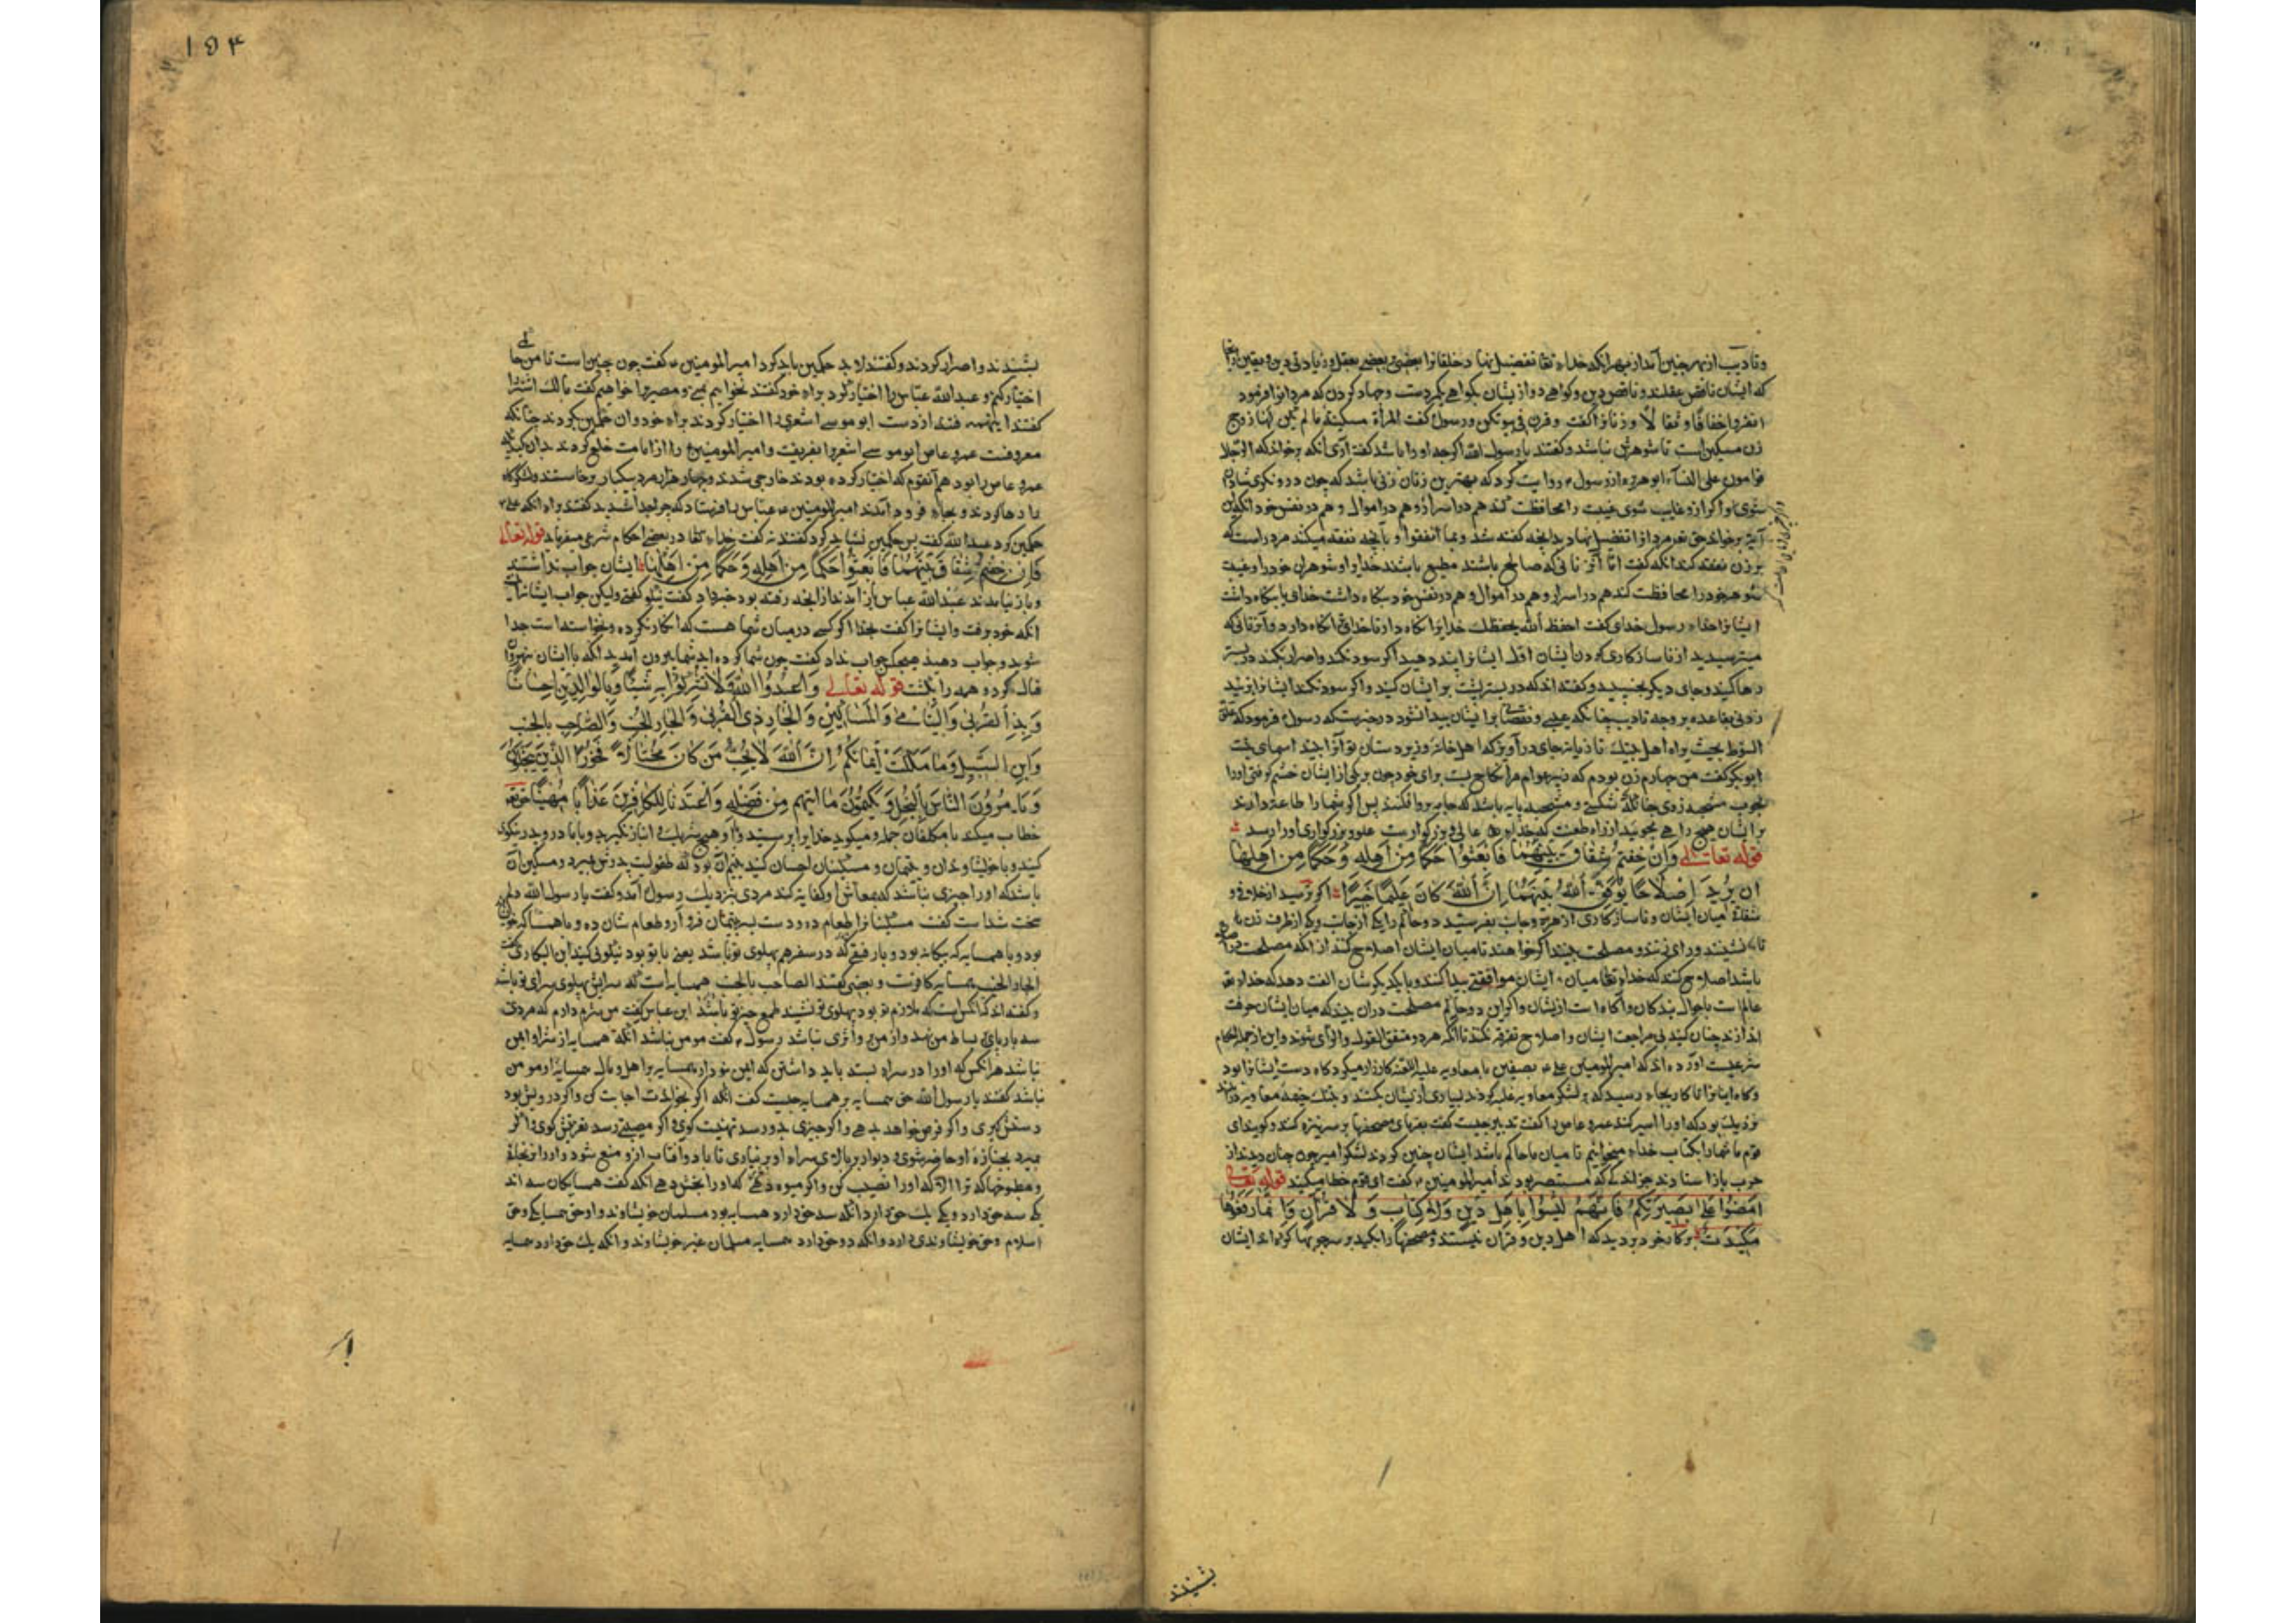 وتادیب ازبهر چنین آمد از بهر آنکه خداء تعا تفضیل نهاد خلقانرا بعضی بر بعضی بعقل و زیادتی دین و یقین
که ایشان ناقص عقلند و ناقص دین و کواهی دو ازیشان بکواهی یکمردست و جهاد کردن که مردانرا فرمود
انفروا خفافا وثقالا وزنانرا کفت وقرن فی بیوتکن ورسول کفت المرأة مسکینة مالم یکن لها زوج
زن مسکین است تا شوهرش نباشد وکفتند یا رسول الله اکرچه اورا باشد کفت آری آنکه برخواند که الرجال
قوامون علی النساء ابوهریره از رسول روایت کرد که بهترین زنان زنی باشد که چون درو نکری شاد
شوی واکر ازو غایب شوی غیبت را محافظت کند هم در اسرار و هم در اموال و هم در نفس خود آنکه این
آیة برخواند حق تعا مردانرا تفضیل نهاد بدانچه کفته شد وبما انفقوا و بآنچه نفقه میکند مرد راست که
بر زن نفقه کند آنکه کفت اما آن زنانی که صالح باشند مطیع باشند خدایرا و شوهران خودرا و غیبت
شوهر خودرا محافظت کنند هم در اسرار و هم در اموال و هم در نفس خود نکاه داشت خدای بنکاه داشت
ایشانرا خداء رسول خدای کفت احفظ الله یحفظک خدایرا نکاه دار تا خدای ترا نکاه دارد و آن زنانی که
میترسید از ناسازکاری کردن ایشان اول ایشانرا پند دهید اکر سود نکند و اصرار کنند در بستر
رها کنید و جای دیکر بخسبید و کفته اند که در بستر پشت بر ایشان کنید واکر سود نکند ایشانرا بزنید
زدنی بقاعده بر وجه تادیب چنانکه عیبی و نقصی برایشان پیدا نشود در خبرست که رسول فرمود که علق
السوط بحیث یراه اهل بیتک تازیانه جای درآویز که اهل خانه و زیردستان تو آنرا بینند اسماء بنت
ابوبکر کفت من چهارم زن بودم که زبیر عوام مرا نکاح بست برای خود چون بر یکی از ایشان خشم کرفتی اورا
بچوب مشجب زدی چنانکه بشکستی و مشجب پایه باشد که جامه بر او فکنند پس اکر شمارا طاعة دارند
برایشان هیچ راهی مجویید از راه طعنت که خدای عالی و بزرکوارست علو و بزرکواری اورا رسد
قوله تعالی وان خفتم شقاق بینهما فابعثوا حکما من اهله وحکما من اهلها
ان یریدا اصلاحا یوفق الله بینهما ان الله کان علیما خبیرا اکر ترسید از خلاف و
شقاق میان ایشان و ناسازکاری از هر دو جانب بفرستید دو حاکم را یکی از جانب ویکی از طرف زن
تا بنشینند ورای زنند و مصلحت بینند اکر خواهند تا میان ایشان اصلاح کنند از آنکه مصلحت در آن
باشد اصلاح کنند که خداء تعا میان ایشان موافقتی پیدا کند و با یکدیکرشان الفت دهد که خداء تعا
عالم است باحوال بندکان وآکاه است ازیشان واکر این دو حاکم مصلحت دران بینند که میان ایشان فرقت
اندازند چنان کنند بی مراجعت ایشان واصلاح تفرقه نکنند تا آنکه هر دو متفق القول والرای شوند واین از جمله احکام
شرعیست آورده اند که امیرالمومنین علی بصفین با معاویه علیه اللعنة کارزار میکرد کاه دست ایشانرا بود
وکاه اینانرا تا کار بجای رسید که لشکر معاویه غلبه کردند بسیاری ازیشان بکشتند و جنک بخیمه معاویه
نزدیک بود که اورا اسیر کنند عمرو عاص را کفت تدبیر چیست کفت بفرمای مصحفها بر سر نیزه کنند و کویند ای
قوم ما شمارا بکتاب خداء میخوانیم تا میان ما حاکم باشد ایشان چنین کردند لشکر امیر چون چنان دیدند از
حرب باز استادند جز اندکی که مستبصر بودند امیرالمومنین کفت ای قوم خطا میکنید قوله تعالی
امضوا علی بصیرتکم فانهم لیسوا باهل دین ولا کتاب ولا قرآن وانما رفعوها
مکیدة برکار خود بروید که اهل دین و قرآن نیستند و مصحفها را بکید بر سر چوبها کرده اند ایشان
بشنیدند
۱۵۴
بشنیدند و اصرار کردند و کفتند لابد حکمین باید کرد امیرالمومنین کفت چون چنین است تا من
اختیار کنم و عبدالله عباس را اختیار کرد برای خود کفتند نخواهیم کفت مالک اشتر
کفتند این همه فتنه از دست ابوموسی اشعری را اختیار کردند برای خود وآن حکمین بکردند چنانکه
معروفست عمرو عاص ابوموسی اشعریرا بفریفت و امیرالمومنین را از امامت خلع کردند
عمرو عاص را بود هم آن قوم که اختیار کرده بودند خارجی شدند و چهار هزار مرد بیکبار برخاستند
رها کردند و بجای فرود آمدند امیرالمومنین عباس را فرستاد که چرا جدا شدید کفتند برای آنکه علی
حکمین کرد عبدالله کفت پس حکمین نشاید کرد کفتند نه کفت خداء تعا در بعضی احکام شرعی میفرماید قوله تعالی
فان خفتم شقاق بینهما فابعثوا حکما من اهله وحکما من اهلها ایشان جواب نداشتند
وباز نیامدند عبدالله عباس باز آمد از آنچه رفته بود خبر داد کفت نیکو کفتی ولیکن جواب ایشان
آنکه خود برفت وایشانرا کفت بخدا اکر کسی در میان شما هست که انکار نکرده و نخواسته است جدا
شوید و جواب دهید هیچکس جواب نداد کفت چون شما کرده اید شما بیرون آمدید آنکه با ایشان
قتال کرده همه را بکشت قوله تعالی واعبدوا الله ولا تشرکوا به شیئا وبالوالدین احسانا
وبذی القربی والیتامی والمساکین والجار ذی القربی والجار الجنب والصاحب بالجنب
وابن السبیل وما ملکت ایمانکم ان الله لا یحب من کان مختالا فخورا الذین یبخلون
ویامرون الناس بالبخل ویکتمون ما آتیهم من فضله واعتدنا للکافرین عذابا مهینا
خطاب میکند با مکلفان جمله و میکوید خدایرا پرستید و با او هیچ شریک و انباز نکیرید و با مادر و پدر نیکوی
کنید و با خویشاوندان و یتیمان و مسکینان احسان کنید یتیم آن بود که بطفولیت پدرش بمیرد و مسکین آن
باشد که اورا چیزی نباشد که معاش او کفایه کند مردی بنزدیک رسول آمد وکفت یا رسول الله دلم
سخت شداست کفت مسکینانرا طعام ده و دست بسر یتیمان فرو آر و طعام شان ده و با همسایه که
بود و با همسایه که بیکانه بود و با رفیقی که در سفر هم پهلوی تو باشد یعنی با تو بود نیکویی کنید
الجار الجنب همسایه کافرست و بعضی کفتند الصاحب بالجنب همسایه است که سرایش پهلوی سرای تو باشد
وکفته اند آنکس است که ملازم تو بود پهلوی تو نشیند طمع چیز تو باشد ابن عباس کفت من شرم دارم که مردی
سه بار بای بساط من نهد و از من برو اثری نباشد رسول کفت مومن نباشد آنکه همسایه از شر او ایمن
نباشد هر آنکس که اورا در سرای ببندد باید داشتن که ایمن نبود از همسایه بر اهل و مال همسایه او مومن
نباشد کفتند یا رسول الله حق همسایه بر همسایه چیست کفت آنکه اکر بخواندت اجابت کن واکر درویش بود
دستش کیری واکر قرض خواهد بدهی واکر چیزی بدو رسد تهنیت کوی واکر مصیبتی رسد تعزیتش کوی واکر
بمیرد بجنازه او حاضر شوی و دیوار بر بالای سرای او بر نیاری تا باد و آفتاب ازو منع شود
ومطبوخها که ترا بود که اورا نصیب کن واکر میوه که اورا بخش دهی آنکه کفت همسایکان سه اند
یکی سه حق دارد ویکی یک حق دارد آنکه سه حق دارد همسایه بود مسلمان خویشاوند و او حق همسایکی وحق
اسلام وحق خویشاوندی دارد وآنکه دو حق دارد همسایه مسلمان غیر خویشاوند وآنکه یک حق دارد همسایه